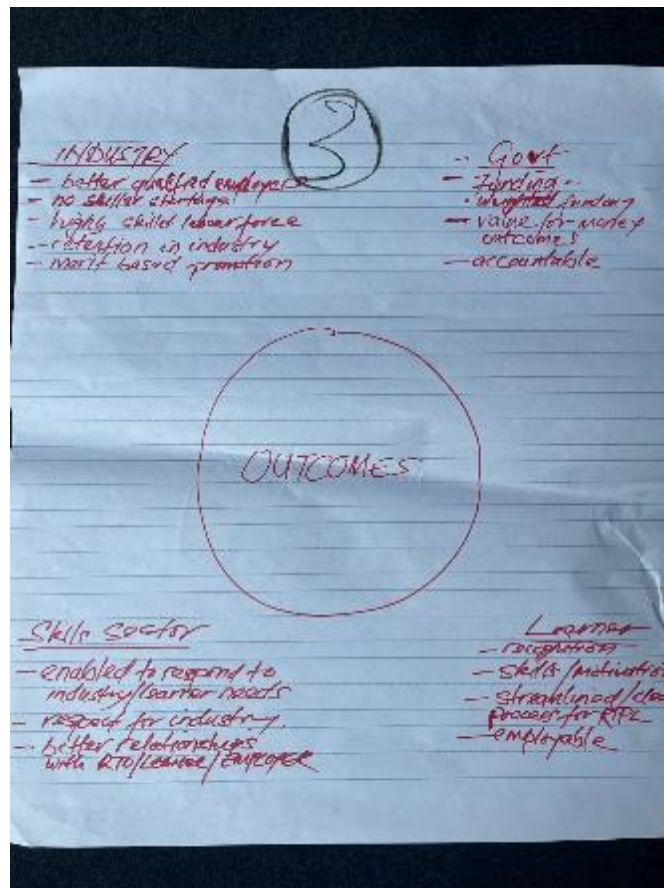 3
INDUSTRY
- better qualified employers
- no skiller shortage
- highly skilld labour force
- retention in industry
- merit based promotion
- Govt
- Funding -
• weighted funding
- value for money
outcomes
- accountable
OUTCOMES
Skills Sector
- enabled to respond to
industry/learner needs
- respect for industry.
- better relationships
with RTO/LEARNER/EMPLOYER
Learner
- recognition
- skills/motivation
- streamlined/
process for
- employable